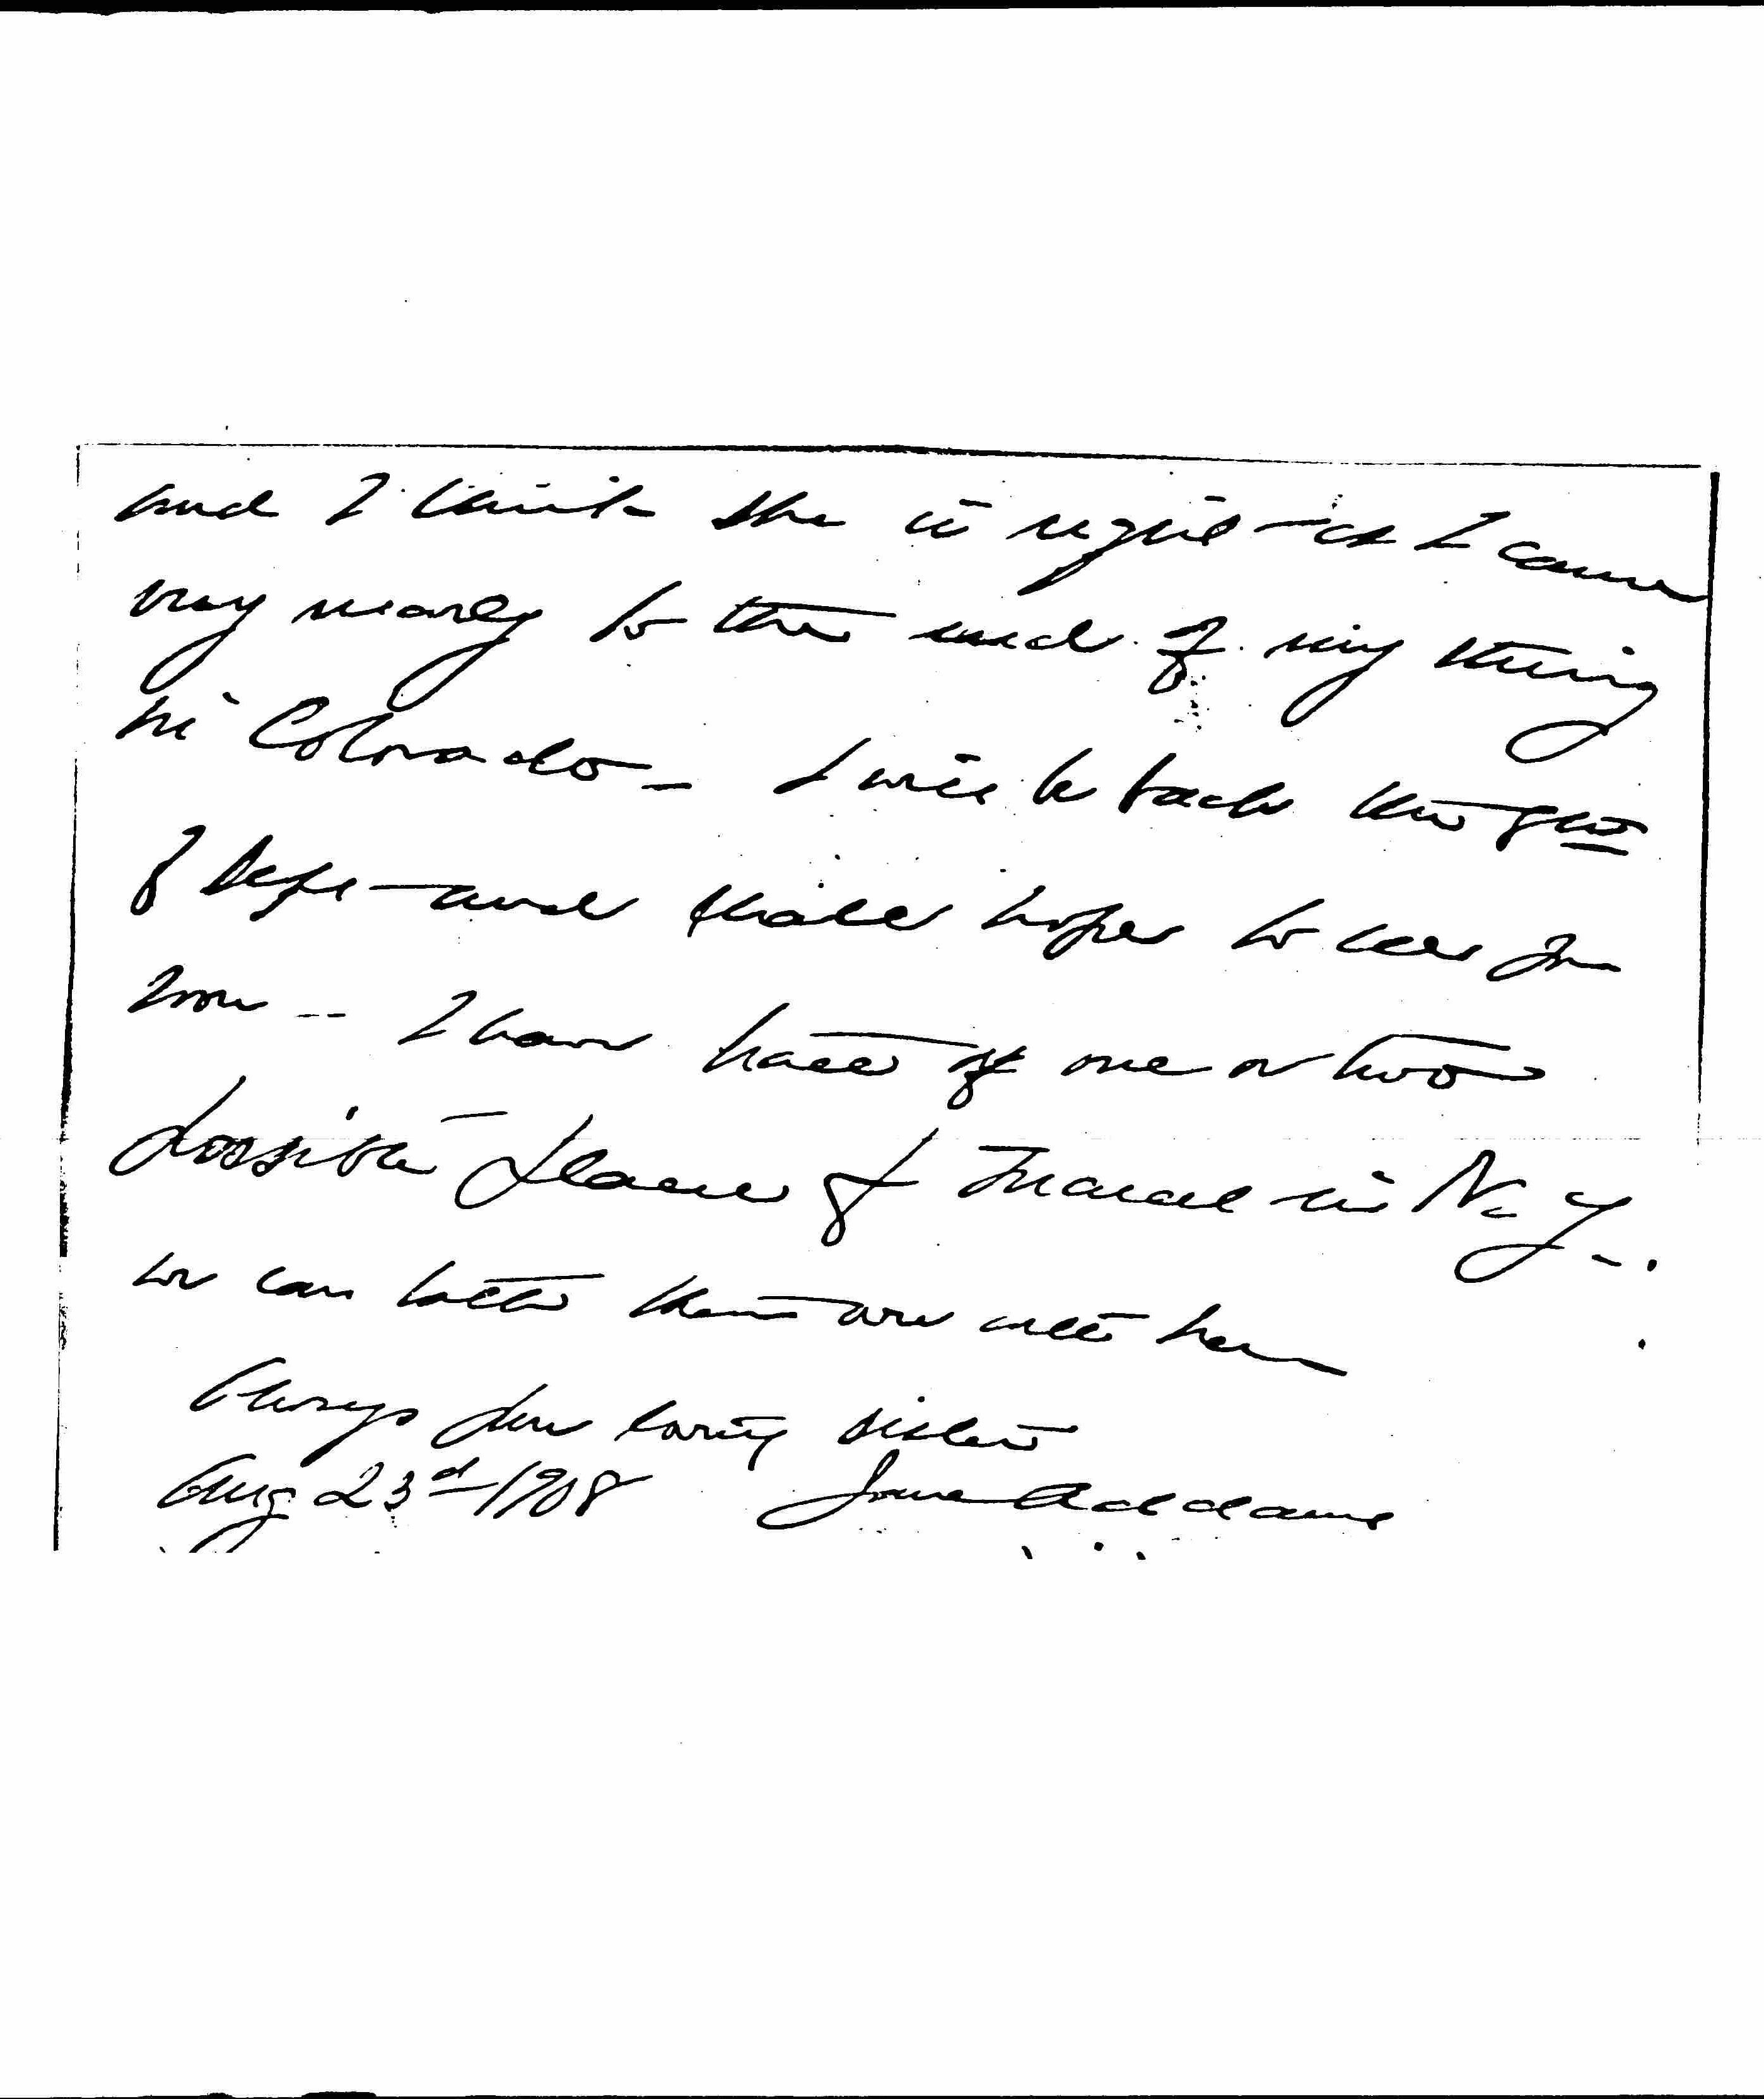 and I think she is right – as I came
very nearly to the end of my string
in Colorado – I will be back the 9th
of Sept – and shall hope to see you
soon -- I have heard of one or two
possible places for in N. Y. –
we can talk them over with her
Always your loving sister
Aug 23d 1908 Jane Addams